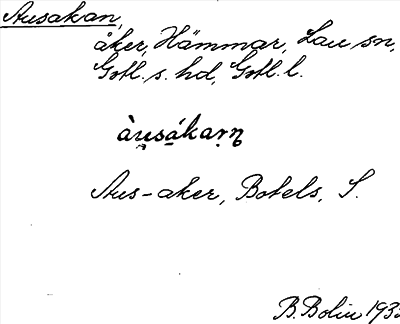 Ausakan,
åker, Hämmar, Lau sn,
Gotl. s. hd, Gotl. l.
àu̯sákaṛn
Aus-aker, Botels, S.
B. Bolin 193